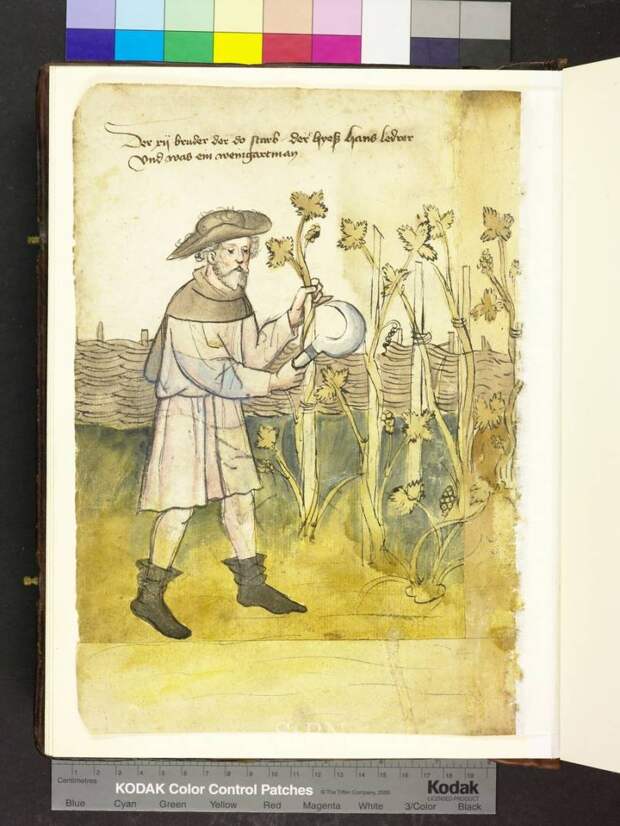 Der xij bruder der do starb der hyeß hans ledrer
Vnd was ein weingartman
StBN
1 2 3 4 5 6 7 8 9 10 11 12 13 14 15 16 17 18 19
Centimetres
KODAK Color Control Patches © The Tiffen Company, 2000 Kodak
LICENSED PRODUCT
Blue Cyan Green Yellow Red Magenta White 3/Color Black